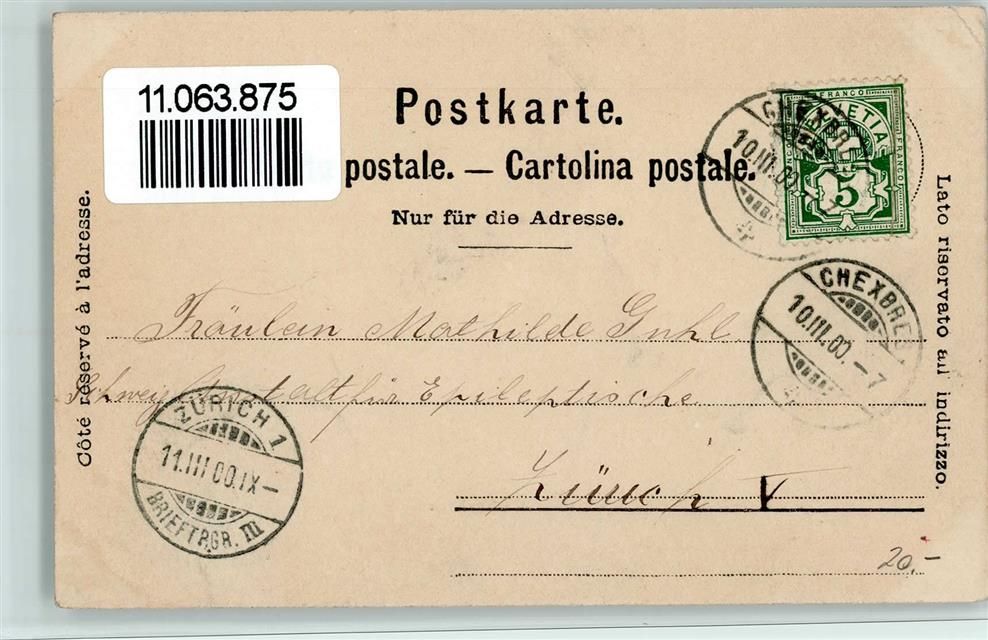 11.063.875
Postkarte.
postale. — Cartolina postale.
Nur für die Adresse.
FRANCO
HELVETIA
FRANCO
5
CHEXBRES
10.III.00.-7
CHEXBRES
10.III.00.-7
Côté réservé à l'adresse.
Lato riservato all' indirizzo.
Fräulein Mathilde Guhl
Schweiz. Anstalt für Epileptische
Zürich V
ZÜRICH 1
11.III.00.IX-
BRIEFTRGR. III
20.-